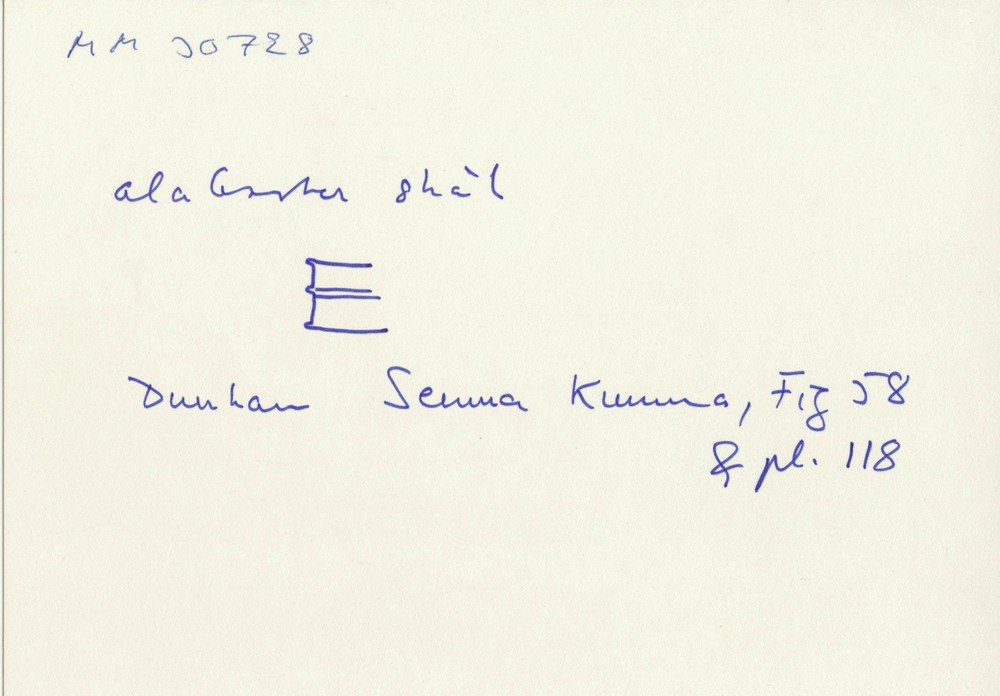 MM 30728
alabaster skål
E
Dunham Semna Kumma, Fig 58
& pl. 118